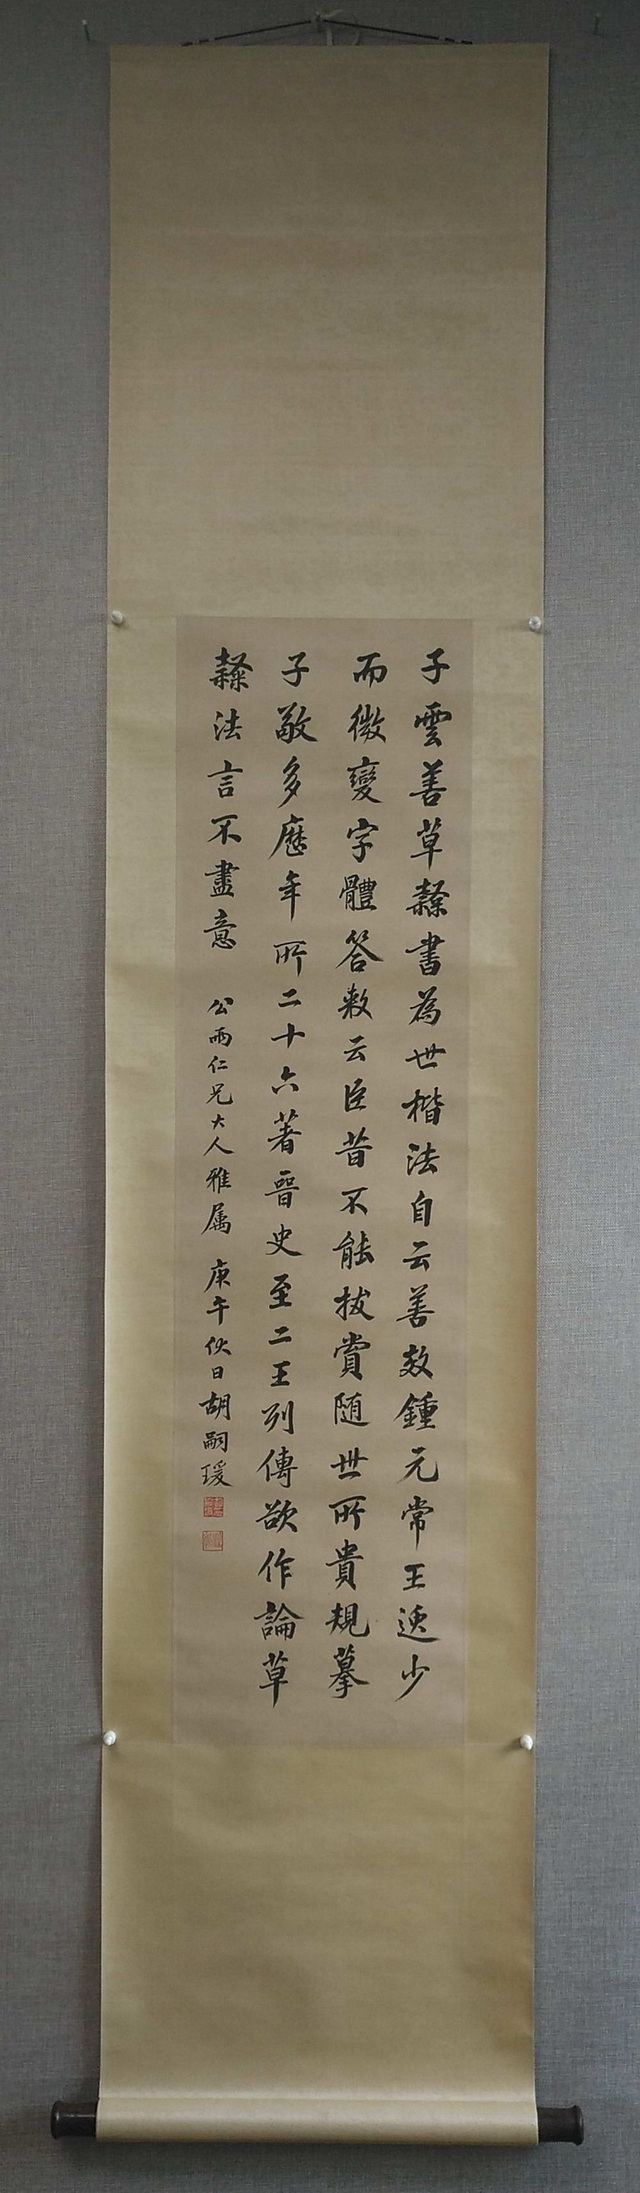 子雲善草隸書為世楷法自云善效鍾元常王逸少
而微變字體答敕云臣昔不能拔賞随世所貴規摹
子敬多歷年所二十六著晉史至二王列傳欲作論草
隸法言不盡意
公雨仁兄大人雅属 庚午伙日胡嗣瑗